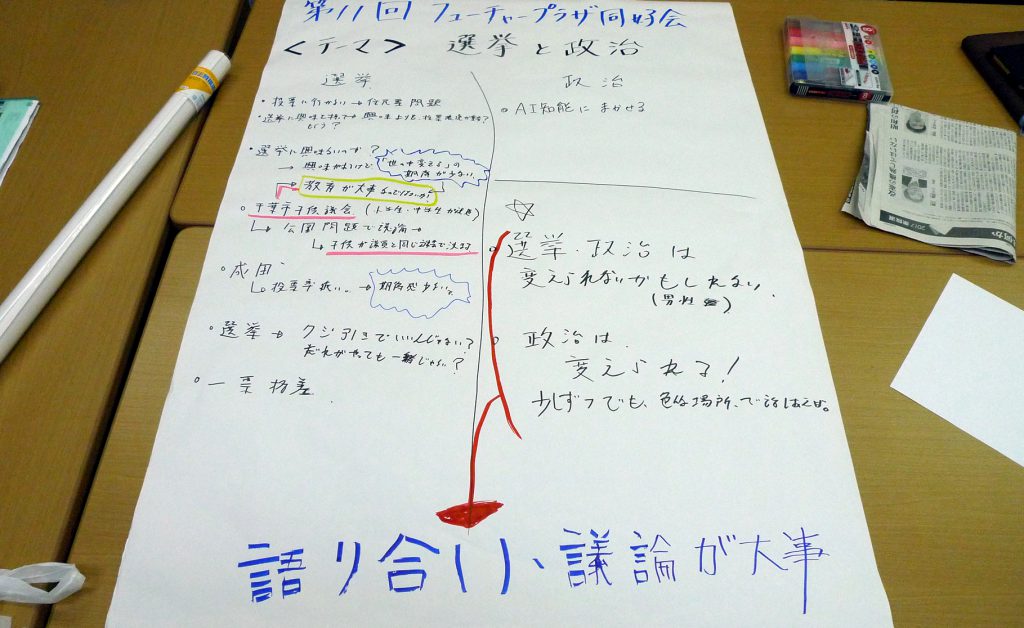 第11回 フューチャープラザ同好会
<テーマ> 選挙と政治
選挙
・投票に行かない→住民票問題
・選挙に興味を持って→興味
どう?
・選挙に興味ないのず?
→興味がわけで「世の中変える」の
期待が少ない、
教育が大事なのではないか!
○千葉市子供議会 (小学生・中学生が
↳公園問題で議論→
↳子供が議員と同じ
・成田
↳投票率低い。→期待感少ない。
・選挙→クジ引きでいいんじゃない?
だれがやっても一緒じゃない?
・一票格差
政治
○AI知能にまかせる
☆
○選挙・政治は
変えられないかもしれない。
(男性
○政治は
変えられる!
少しずつでも、色んな場所、で
語り合い、議論が大事